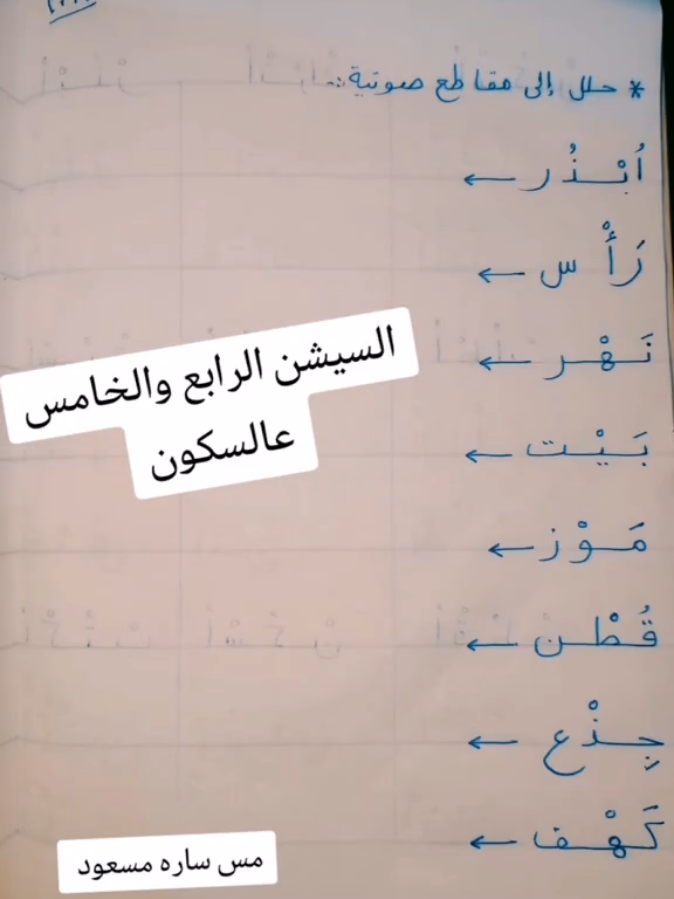 * حلل إلى مقاطع صوتية:
اُبْـذُر ←
رَأْس ←
نَـهْـر ←
بَـيْـت ←
مَـوْز ←
قُـطْـن ←
جِـذْع ←
كَـهْـف ←
السيشن الرابع والخامس
عالسكون
مس ساره مسعود